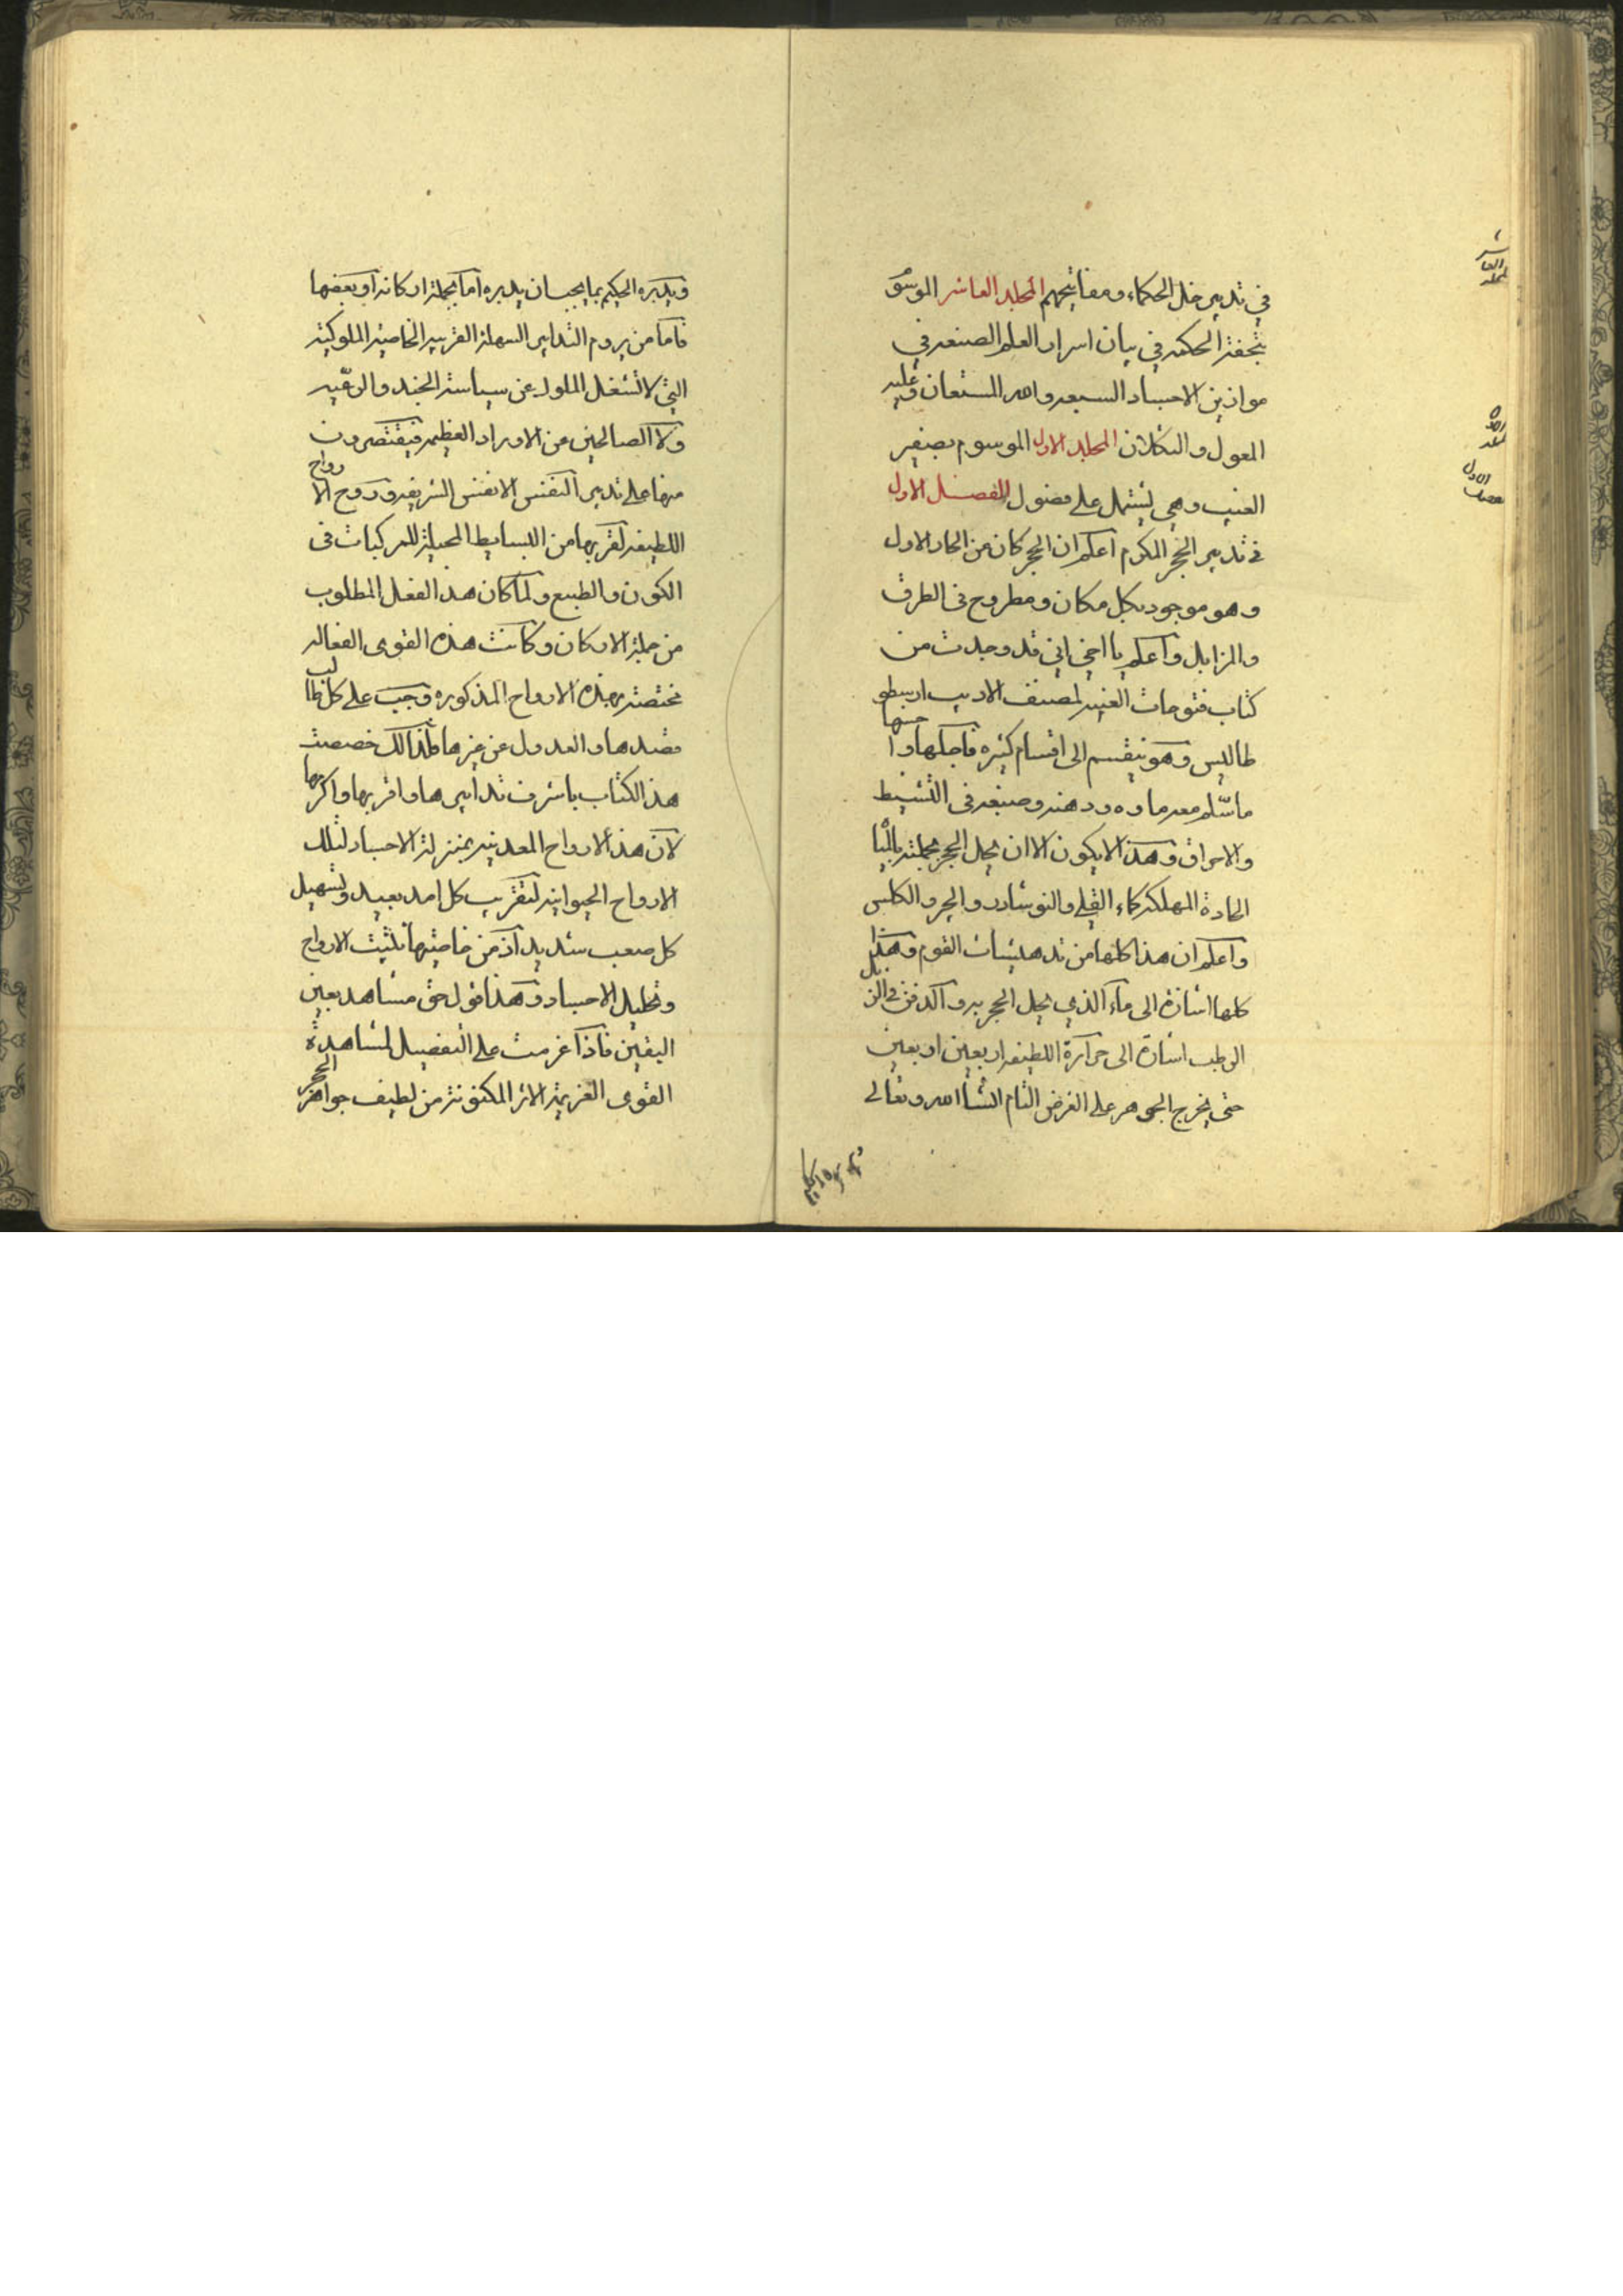 في تدبير خل الحكماء ومفاتيحهم المجلد العاشر الموسو
بتحفة الحكمه في بيان اسرار العلم الصنعه في
موازين الاجساد السبعه والله المستعان وعليه
المعول والتكلان المجلد الاول الموسوم بصغير
العنيب وهي يشتمل على فصول الفصل الاول
في تدبير الحجر المكرم اعلم ان الحجر كان من الحار الاول
وهو موجود بكل مكان ومطروح في الطرق
والمزابل واعلم يا اخي اني قد وجدت من
كتاب فتوحات الغيب لمصنف الاديب ارسطو
طاليس وهو ينقسم الى اقسام كثيره فاجلها وا حسنها
ما سلم معه ماوه ودهنه وصبغه في التشيط
والاحراق وهذا لا يكون الا ان يحل الحجر بجملته بالميا
الحادة المهلكة كماء القلي والنوشادر والجير والكلس
واعلم ان هذا كلها من تدهيشات القوم وهكذا
كلها اشارة الى ماء الذي يحل الحجر به والدفن في الز بل
الرطب اشارة الى حرارة اللطيفه اربعين اربعين
حتى يخرج الجوهر على الغرض التام انشاالله وتعالى
ويدبره الحكيم بما يجب ان يدبره اما بجملة اركانه او بعضها
فاما من يروم التدابير السهلة القريبه الخاصيه الملوكيه
التي لا تشغل الملوك عن سياسة الجند والرعيه
ولا الصالحين عن الاوراد العظيمه فيقتصرون
منها على تدبير النفس الانفس الشريفه وروح الا رواح
اللطيفه لقربها من البسايط المحيلة للمركبات في
الكون والطبع ولما كان هذا الفعل المطلوب
من جملة الاركان وكانت هذه القوى الفعاله
مختصة بهذه الارواح المذكوره وجب على كل طا لب
قصدها والعدول عن غيرها فلذالك خصصت
هذا الكتاب باشرف تدابيرها واقربها واكرمها
لان هذ الارواح المعدنيه بمنزلة الاجساد لتلك
الارواح الحيوانيه لتقريب كل امد بعيد وتسهيل
كل صعب شديد اذ من خاصيتها تثبيت الارواح
وتحليل الاجساد وهذا قول حق مشاهد بعين
اليقين فاذا عزمت على التفصيل لمشاهدة
القوى الغريمة الاثر المكنونة من لطيف جواهر الحجر
العاشر
المجلد
الاول